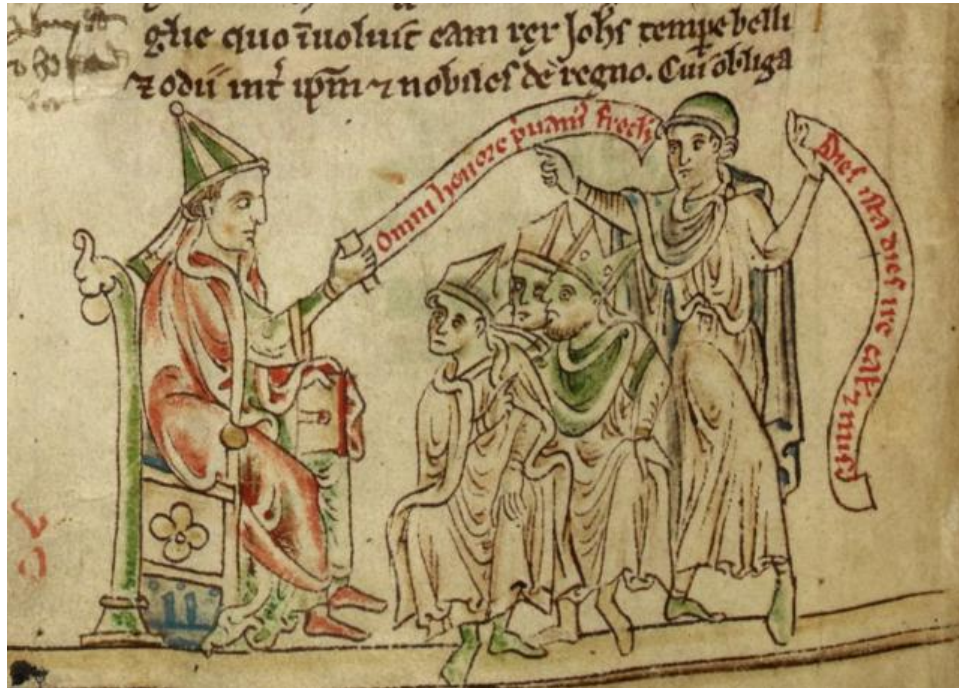 glie quo īuoluit eam rex Johs tempe belli
⁊ odii int̾ ip̄m ⁊ nobiles de regno. Cui obliga
Omni honore p̾uam⁹
Dies ista dies ire cal ⁊ mis